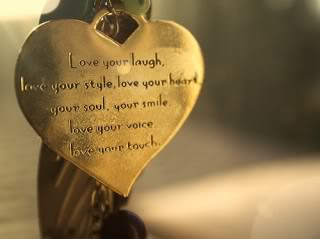 Love your laugh,
love your style, love your heart
your soul, your smile.
love your voice
love your touch.